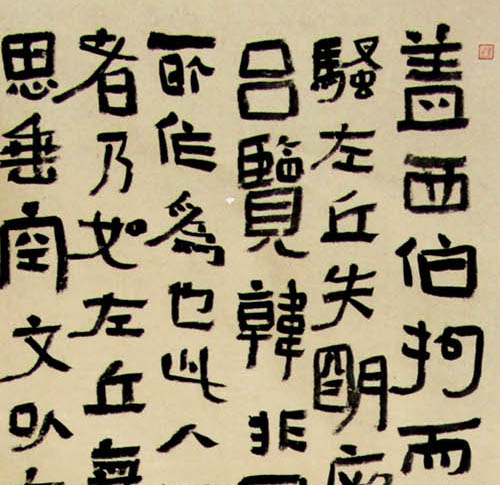 盖西伯拘而
騷左丘失明厥
吕覽韓非
所作為也此人
者乃如左丘無
思垂空文以